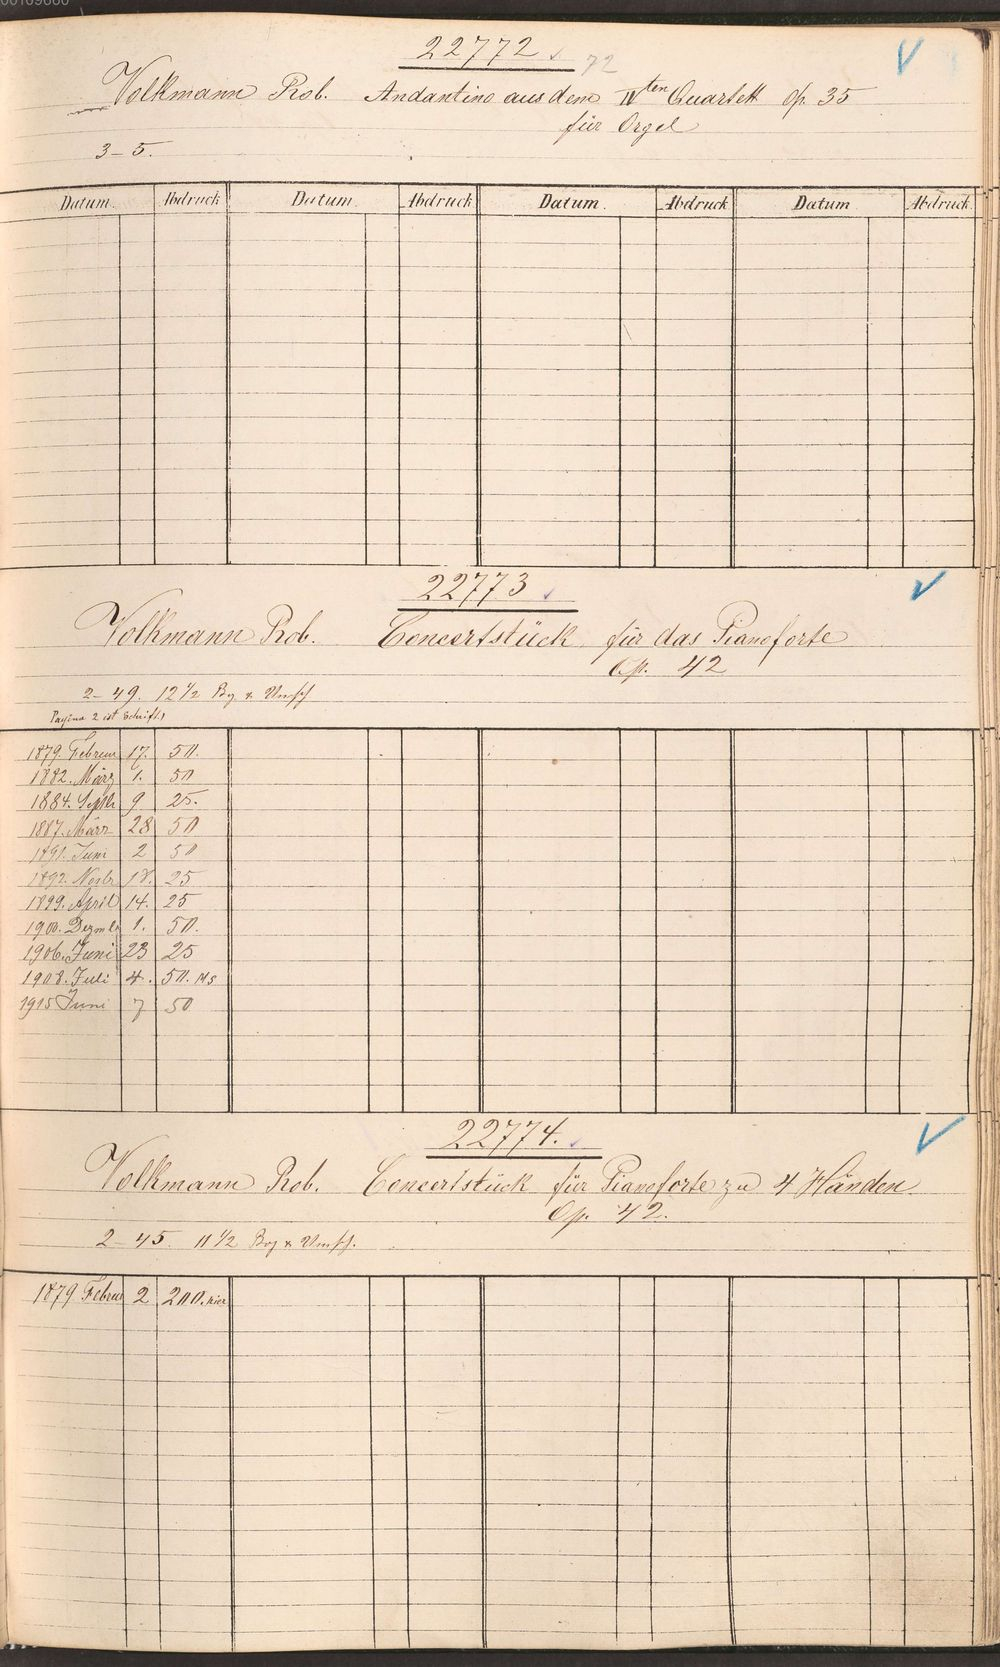 22772
72
Volkmann Rob. Andantino aus dem IVten Quartett Op. 35
für Orgel
3-5.
Datum. Abdruck Datum Abdruck Datum. Abdruck Datum Abdruck
22773
Volkmann Rob. Concertstück für das Pianoforte
Op. 42
2-49. 12 1/2 Bog & Umsch
Pagina 2 ist Schrift
1879. Februar 17. 50.
1882. März 1. 50
1884. Septbr 9 25.
1887. März 28 50
1891. Juni 2 50
1892. Novbr 18. 25
1899. April 14. 25
1900. Dezmbr 1. 50.
1906. Juni 23 25
1908. Juli 4. 50. Ms
1915 Juni 7 50
22774.
Volkmann Rob. Concertstück für Pianoforte zu 4 Händen
Op. 42.
2-45. 11 1/2 Bog & Umsch.
1879 Februar 2 200. hier